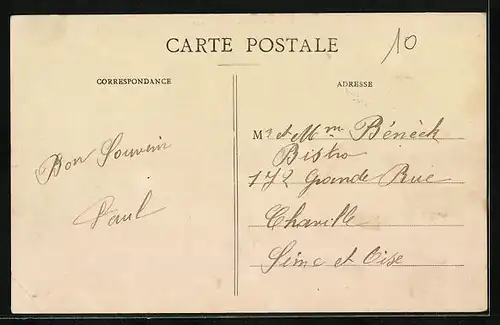 CARTE POSTALE
10
CORRESPONDANCE
ADRESSE
Bon Souvenir
Paul
Mr et Mme Bénéch
Bistro
172 Grande Rue
Chaville
Seine et Oise